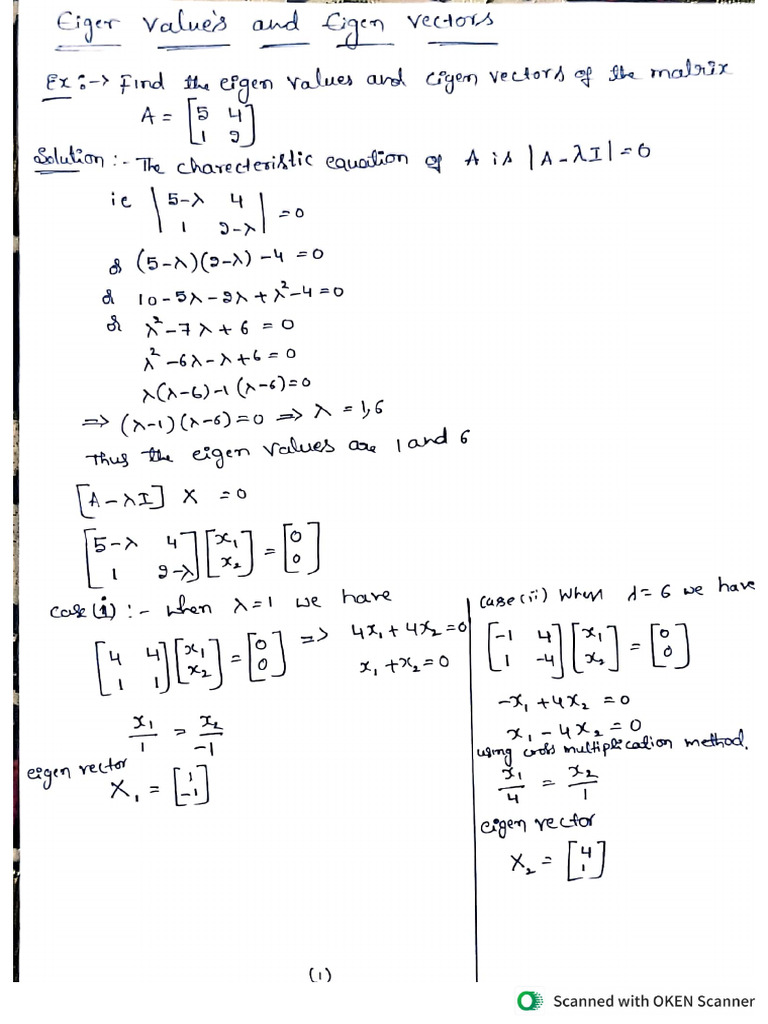 Eigen Values and Eigen Vectors
Ex:-> Find the eigen values and eigen vectors of the matrix
A = [5 4
1 2]
Solution :- The charecteristic equation of A is |A-λI|=0
ie |5-λ 4
1 2-λ| =0
or (5-λ)(2-λ) -4 =0
or 10-5λ-2λ+λ²-4=0
or λ²-7λ+6 =0
λ²-6λ-λ+6=0
λ(λ-6)-1(λ-6)=0
=> (λ-1)(λ-6)=0 => λ = 1,6
Thus the eigen values are 1 and 6
[A-λI] X =0
[5-λ 4
1 2-λ] [x₁
x₂] = [0
0]
case(i) :- when λ=1 we have
[4 4
1 1] [x₁
x₂] = [0
0] => 4x₁+4x₂=0
x₁+x₂=0
x₁/1 = x₂/-1
eigen vector
X₁ = [1
-1]
case(ii) When λ=6 we have
[-1 4
1 -4] [x₁
x₂] = [0
0]
-x₁+4x₂ =0
x₁-4x₂=0
using cross multiplication method.
x₁/4 = x₂/1
eigen vector
X₂ = [4
1]
(1)
Scanned with OKEN Scanner